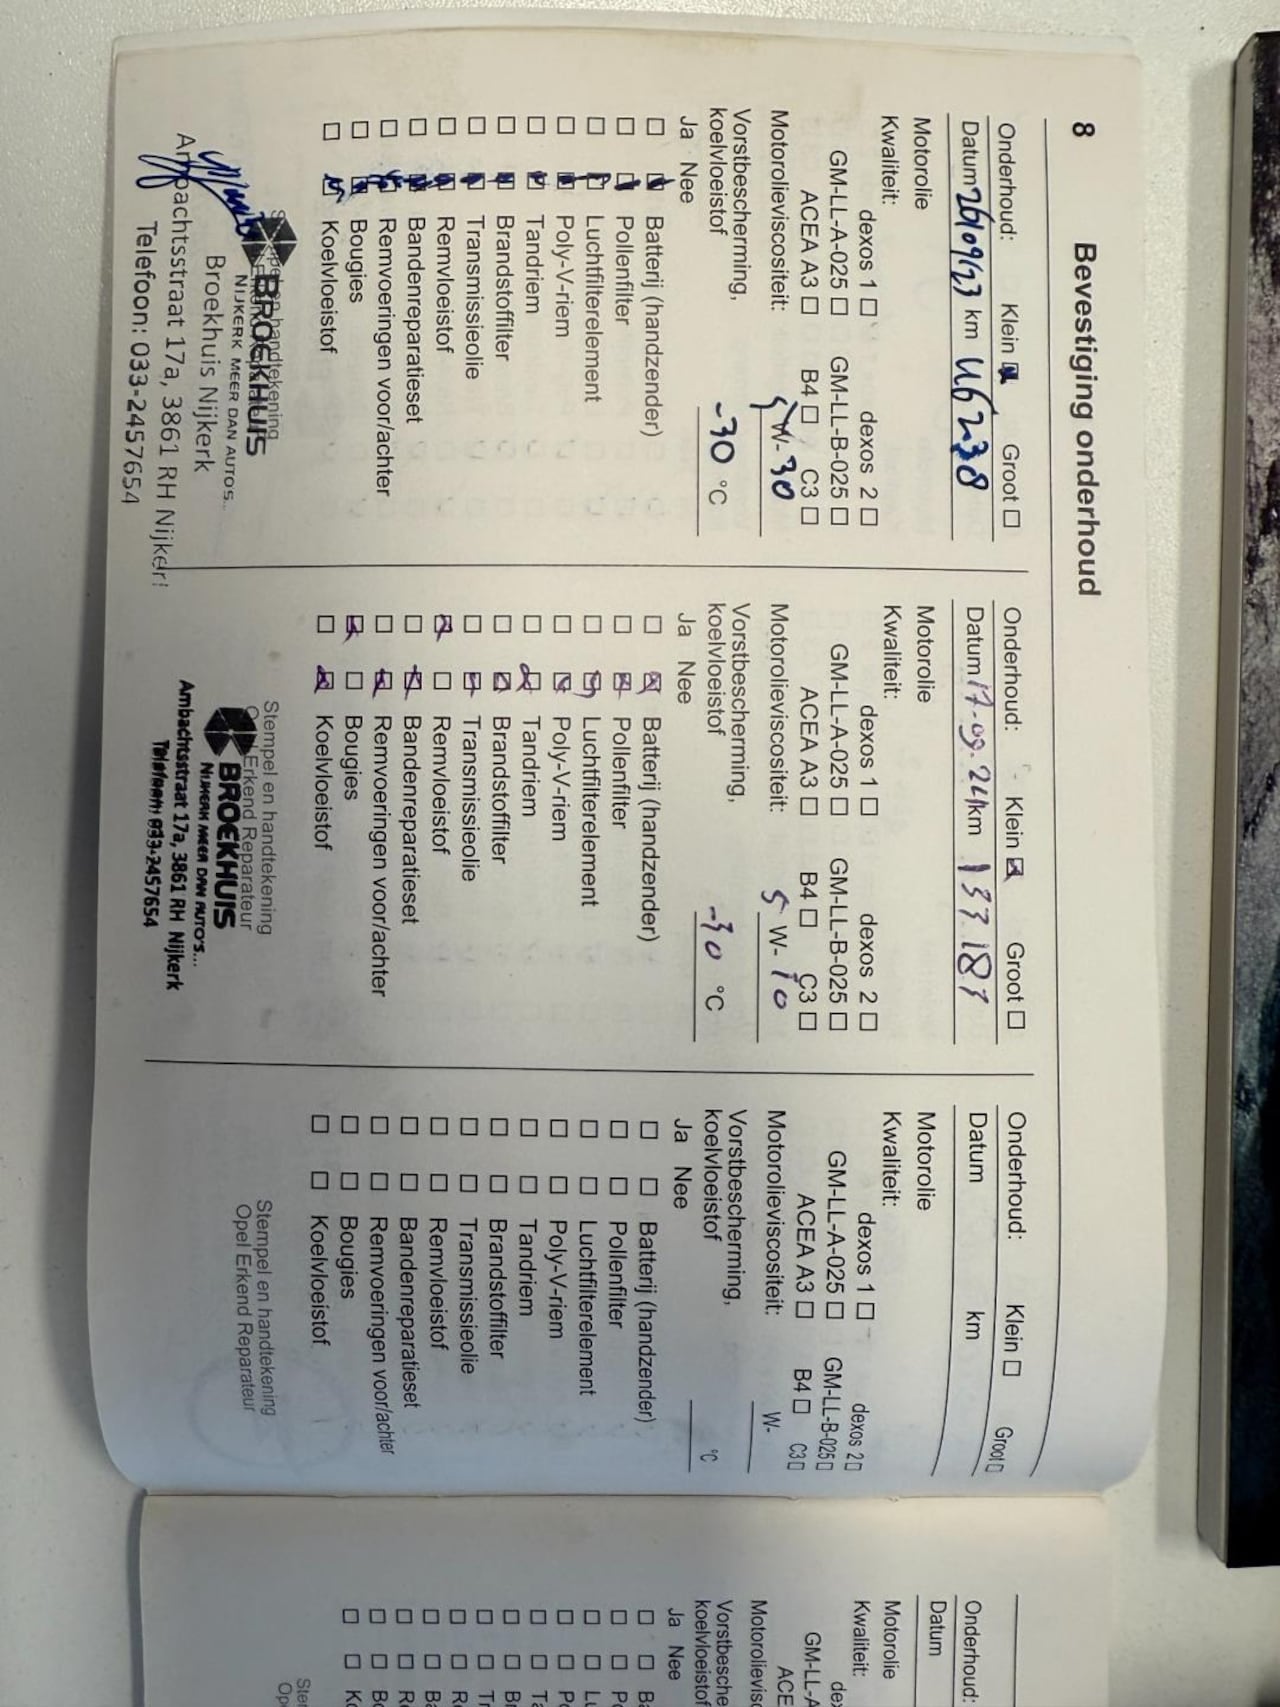 8 Bevestiging onderhoud
Onderhoud: Klein ☒ Groot ☐
Datum 26/09/23 km 116238
Motorolie
Kwaliteit:
dexos 1 ☐ dexos 2 ☐
GM-LL-A-025 ☐ GM-LL-B-025 ☐
ACEA A3 ☐ B4 ☐ C3 ☐
Motorolieviscositeit: 5 W- 30
Vorstbescherming,
koelvloeistof -30 °C
Ja Nee
☐ ☒ Batterij (handzender)
☐ ☒ Pollenfilter
☐ ☒ Luchtfilterelement
☐ ☒ Poly-V-riem
☐ ☒ Tandriem
☐ ☒ Brandstoffilter
☐ ☒ Transmissieolie
☐ ☒ Remvloeistof
☐ ☒ Bandenreparatieset
☐ ☒ Remvoeringen voor/achter
☐ ☒ Bougies
☐ ☒ Koelvloeistof
Stempel en handtekening
BROEKHUIS
NIJKERK MEER DAN AUTO'S..
Broekhuis Nijkerk
Ambachtsstraat 17a, 3861 RH Nijkerk
Telefoon: 033-2457654
Onderhoud: Klein ☒ Groot ☐
Datum 17-09-24 km 137187
Motorolie
Kwaliteit:
dexos 1 ☐ dexos 2 ☐
GM-LL-A-025 ☐ GM-LL-B-025 ☐
ACEA A3 ☐ B4 ☐ C3 ☐
Motorolieviscositeit: 5 W-
Vorstbescherming,
koelvloeistof -30 °C
Ja Nee
☐ ☒ Batterij (handzender)
☐ ☒ Pollenfilter
☐ ☒ Luchtfilterelement
☐ ☒ Poly-V-riem
☐ ☒ Tandriem
☐ ☒ Brandstoffilter
☐ ☒ Transmissieolie
☒ ☐ Remvloeistof
☐ ☒ Bandenreparatieset
☐ ☒ Remvoeringen voor/achter
☒ ☐ Bougies
☐ ☒ Koelvloeistof
Stempel en handtekening
Erkend Reparateur
BROEKHUIS
NIJKERK MEER DAN AUTO'S...
Ambachtsstraat 17a, 3861 RH Nijkerk
Telefoon: 033-2457654
Onderhoud: Klein ☐ Groot ☐
Datum km
Motorolie
Kwaliteit:
dexos 1 ☐ dexos 2 ☐
GM-LL-A-025 ☐ GM-LL-B-025 ☐
ACEA A3 ☐ B4 ☐ C3 ☐
Motorolieviscositeit: W-
Vorstbescherming,
koelvloeistof °C
Ja Nee
☐ ☐ Batterij (handzender)
☐ ☐ Pollenfilter
☐ ☐ Luchtfilterelement
☐ ☐ Poly-V-riem
☐ ☐ Tandriem
☐ ☐ Brandstoffilter
☐ ☐ Transmissieolie
☐ ☐ Remvloeistof
☐ ☐ Bandenreparatieset
☐ ☐ Remvoeringen voor/achter
☐ ☐ Bougies
☐ ☐ Koelvloeistof
Stempel en handtekening
Opel Erkend Reparateur
Onderhoud:
Datum
Motorolie
Kwaliteit:
GM-LL-A
ACE
Motorolievisc
Vorstbesche
koelvloeistof
Ja Nee